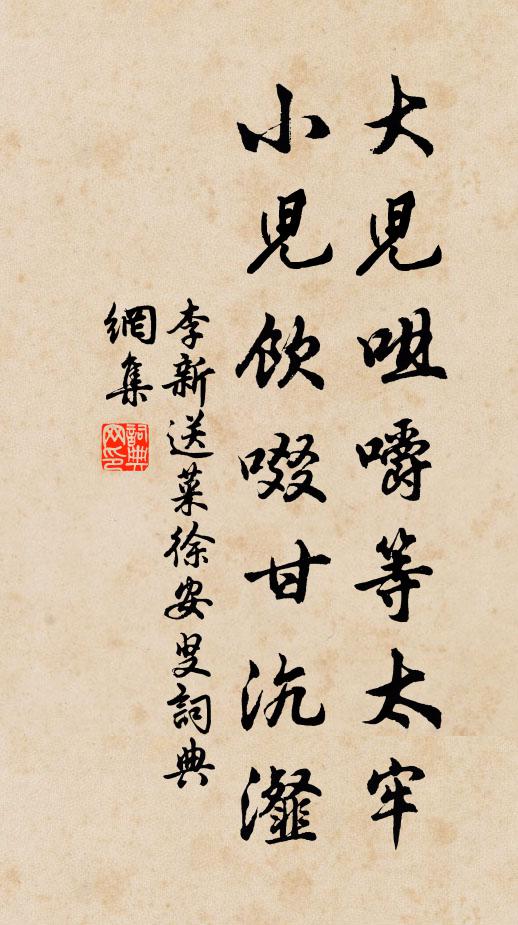 大兒咀嚼等太牢
小兒飲啜甘沆瀣
李新送菜徐安叟詞典
網集
詞典
网印